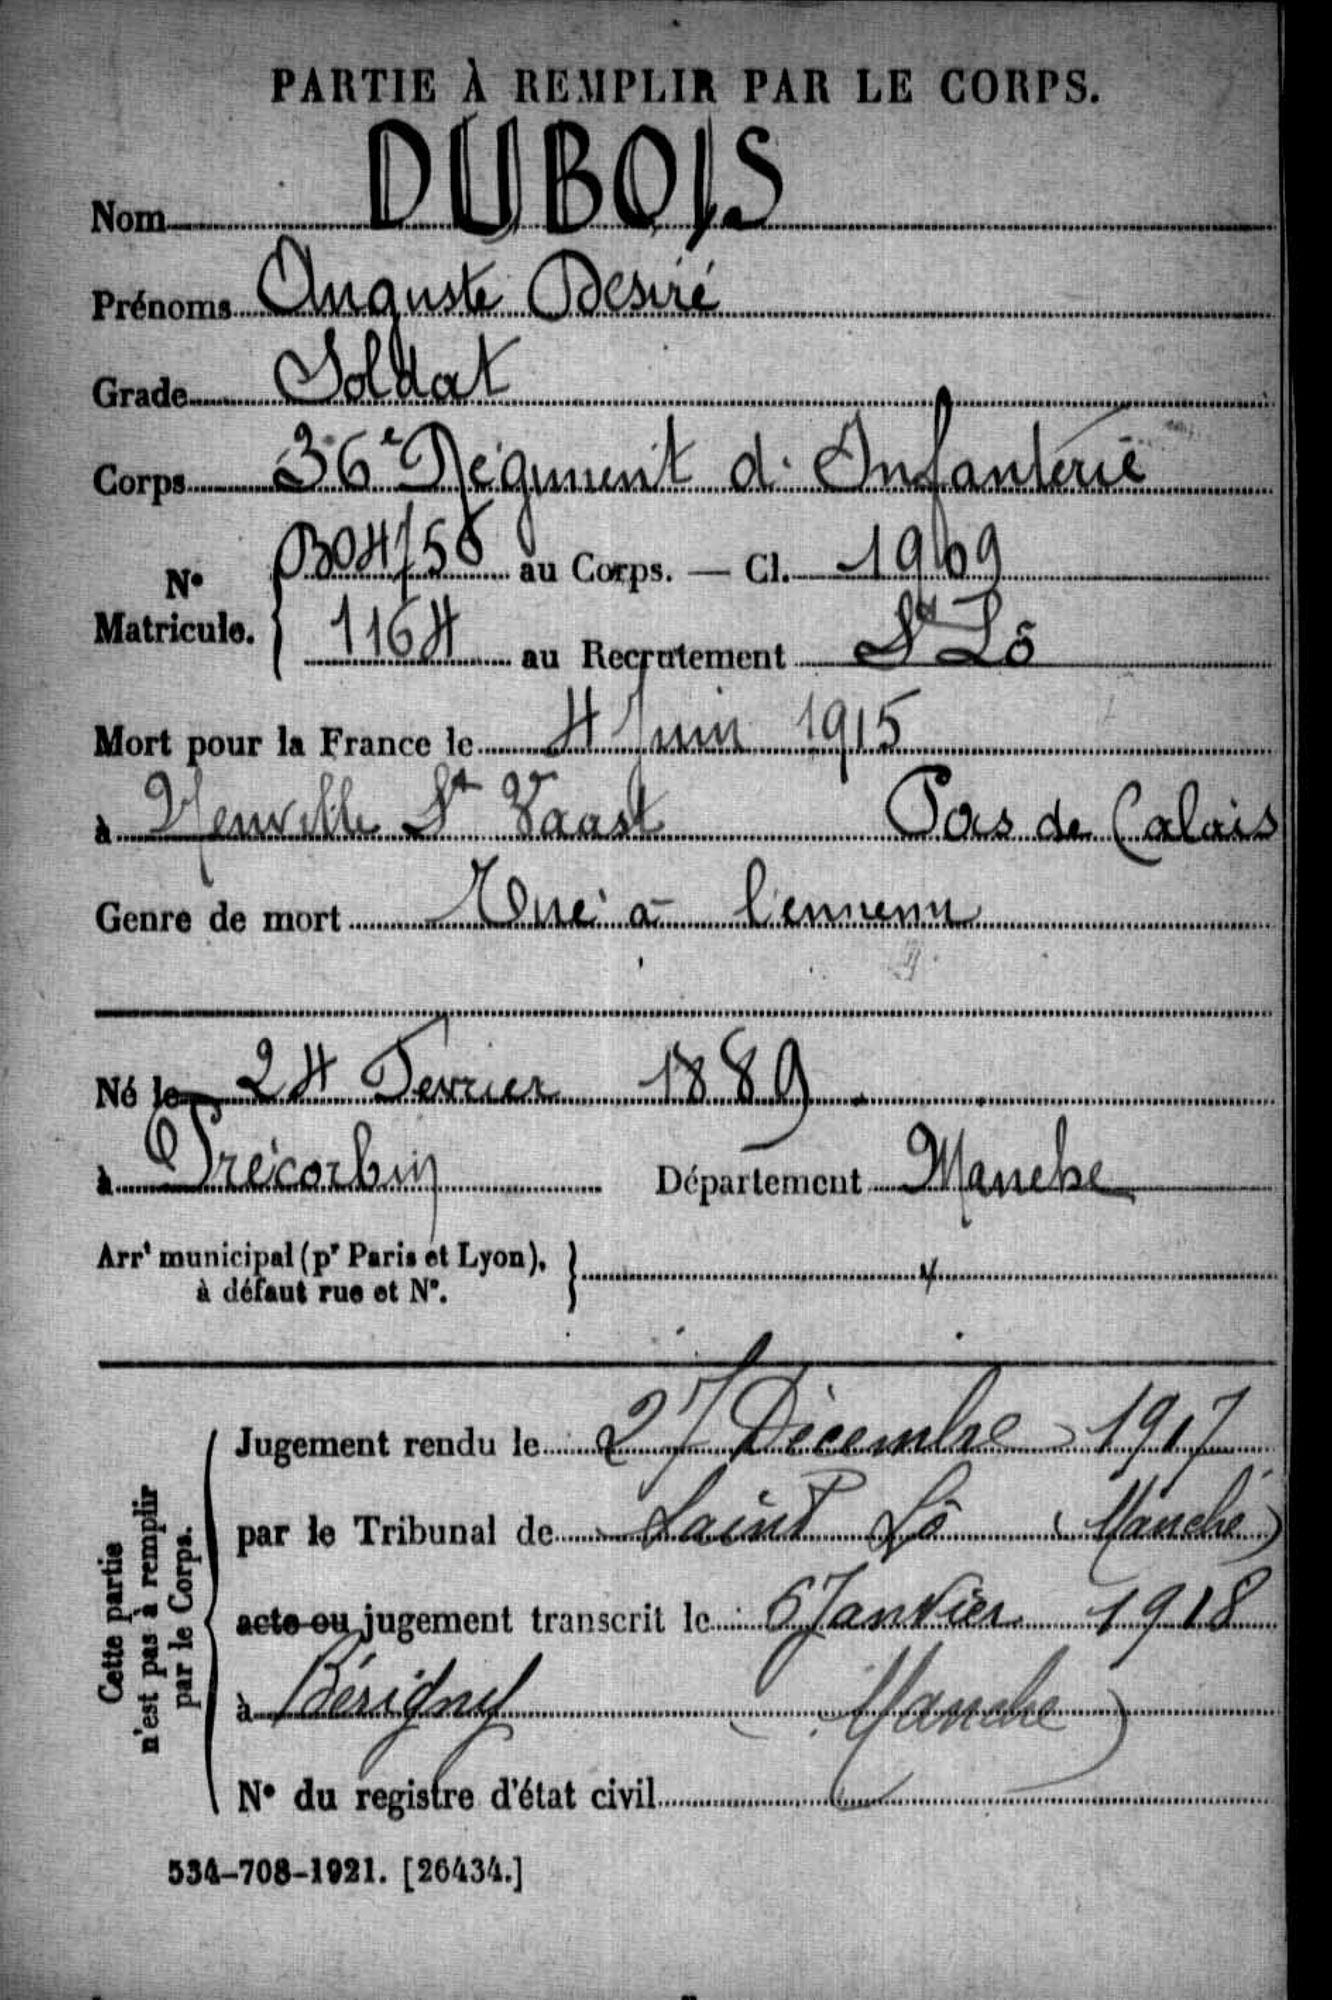 PARTIE À REMPLIR PAR LE CORPS.
Nom DUBOIS
Prénoms Auguste Desiré
Grade Soldat
Corps 36e Régiment d'Infanterie
No Matricule. { B04/58 au Corps. — Cl. 1909
1164 au Recrutement St Lô
Mort pour la France le 4 Juin 1915
à Neuville St Vaast Pas de Calais
Genre de mort Tué à l'ennemi
Né le 24 Fevrier 1889
à Précorbin Département Manche
Arrt municipal (pr Paris et Lyon), à défaut rue et No. }
Cette partie n'est pas à remplir par le Corps.
Jugement rendu le 27 Décembre 1917
par le Tribunal de Saint Lô (Manche)
acte ou jugement transcrit le 6 Janvier 1918
à Bérigny (Manche)
No du registre d'état civil
534-708-1921. [26434.]